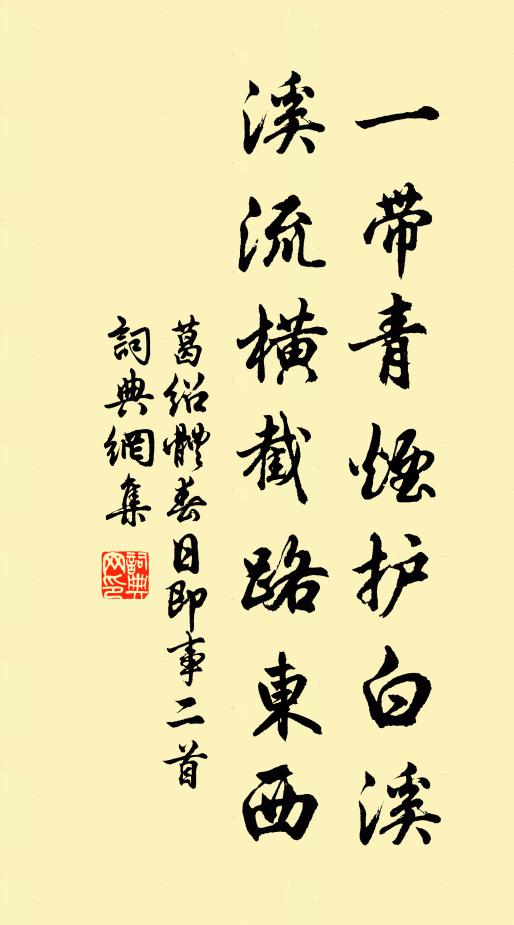 一带青煙护白溪
溪流横截路東西
葛绍體春日即事二首
詞典網集
詞典网印